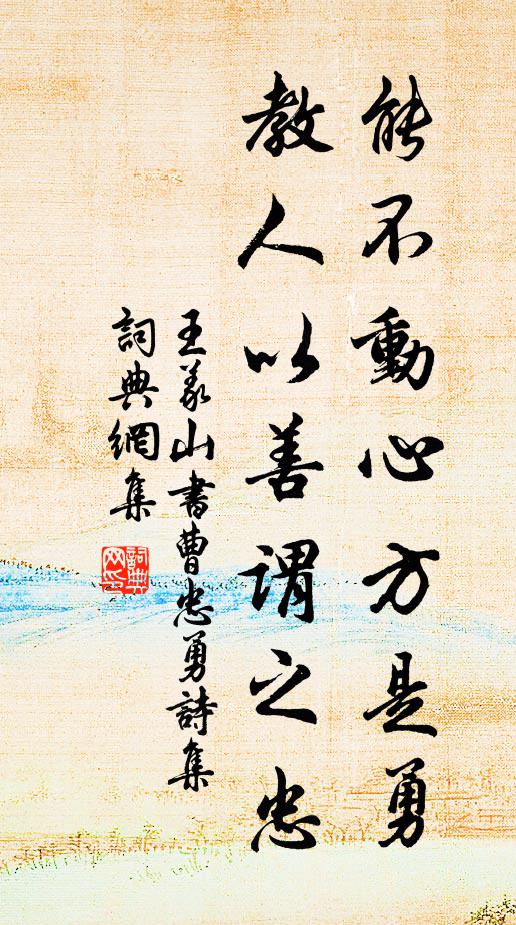 能不動心方是勇
教人以善謂之忠
王義山書曹忠勇詩集
詞典網集
詞典网印